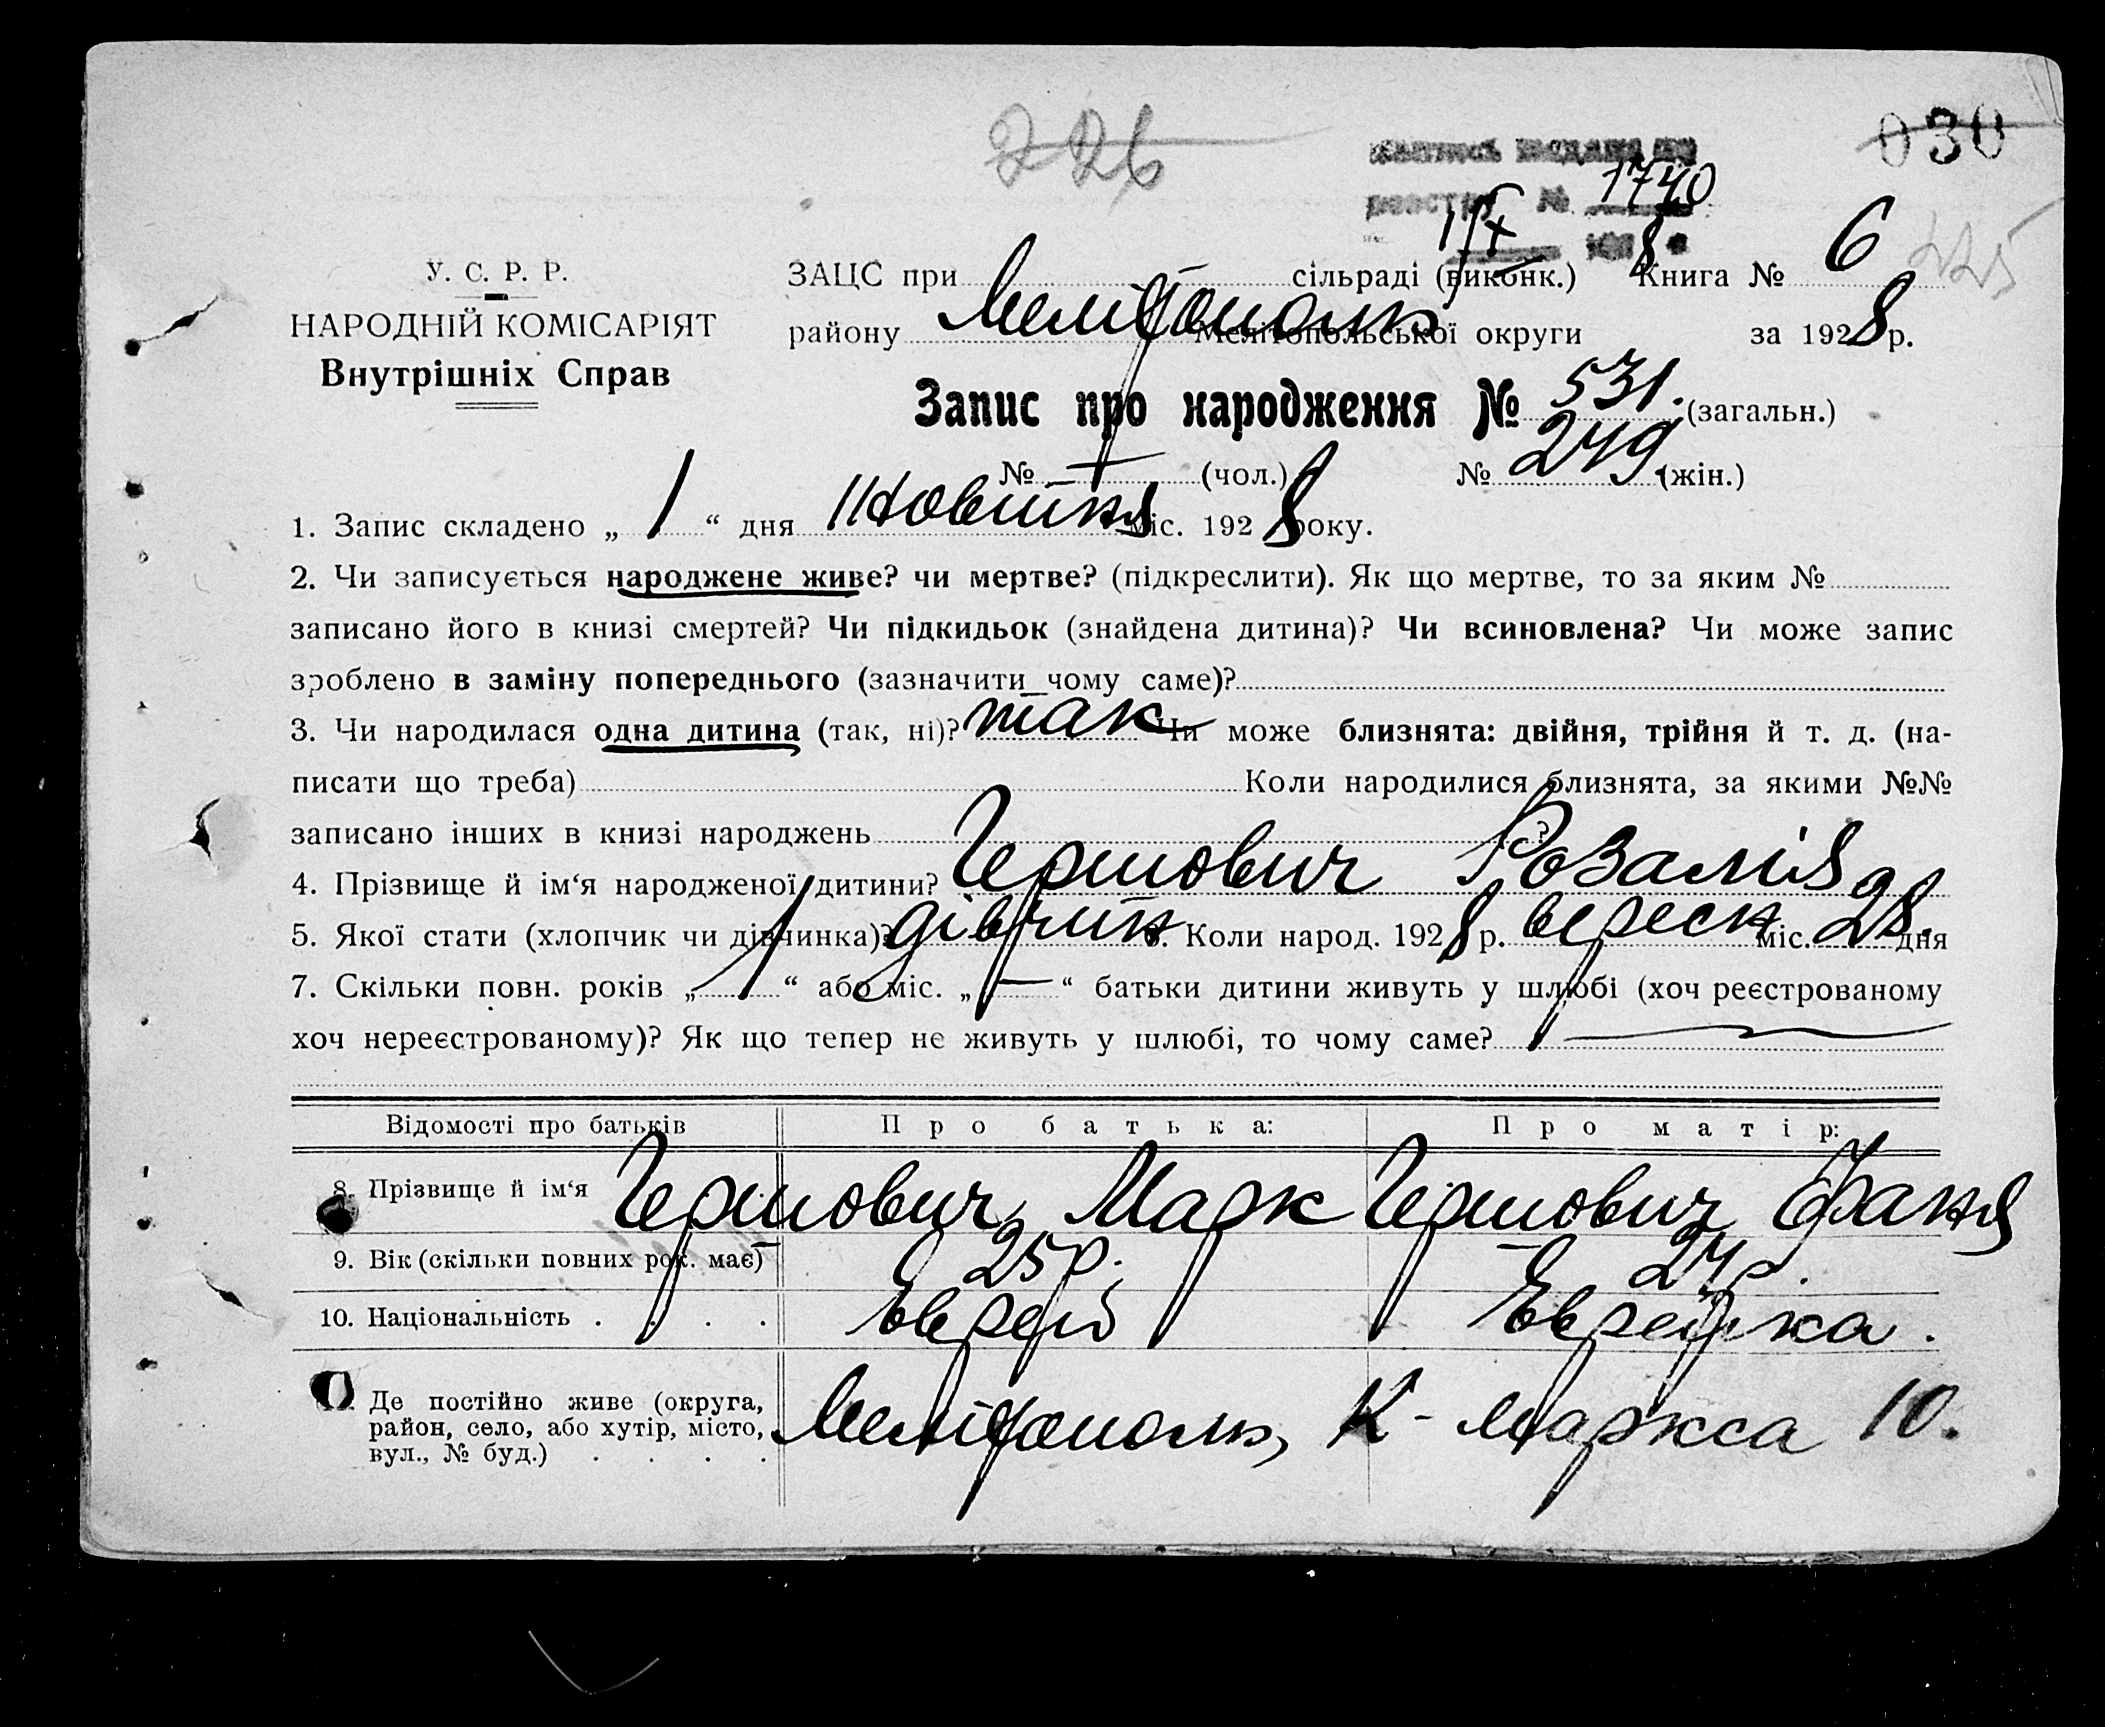 226
030
1740
1/X 8
225
У. С. Р. Р.
НАРОДНІЙ КОМІСАРІЯТ
Внутрішніх Справ
ЗАЦС при сільраді (виконк.) Книга № 6
району Мелітополь Мелітопольської округи за 1928 р.
Запис про народження № 531. (загальн.)
№ — (чол.) № 249. (жін.)
1. Запис складено „ 1 “ дня Жовтня міс. 1928 року.
2. Чи записується народжене живе? чи мертве? (підкреслити). Як що мертве, то за яким №
записано його в книзі смертей? Чи підкидьок (знайдена дитина)? Чи всиновлена? Чи може запис
зроблено в заміну попереднього (зазначити чому саме)?
3. Чи народилася одна дитина (так, ні)? так Чи може близнята: двійня, трійня й т. д. (на-
писати що треба) Коли народилися близнята, за якими №№
записано інших в книзі народжень ?
4. Прізвище й ім‘я народженої дитини? Гершович Розалія
5. Якої стати (хлопчик чи дівчинка)? дівчин 6. Коли народ. 1928 р. вересн міс. 28. дня
7. Скільки повн. років „ 1 “ або міс. „ — “ батьки дитини живуть у шлюбі (хоч реєстрованому
хоч нереєстрованому)? Як що тепер не живуть у шлюбі, то чому саме? —
Відомості про батьків Про батька: Про матір:
8. Прізвище й ім‘я Гершович Марк Гершович Фаня
9. Вік (скільки повних рок. має) 25 р. 24 р.
10. Національність . . . . Єврей Єврейка.
Де постійно живе (округа,
район, село, або хутір, місто,
вул., № буд.) . . . . Мелітополь, К-Маркса 10.